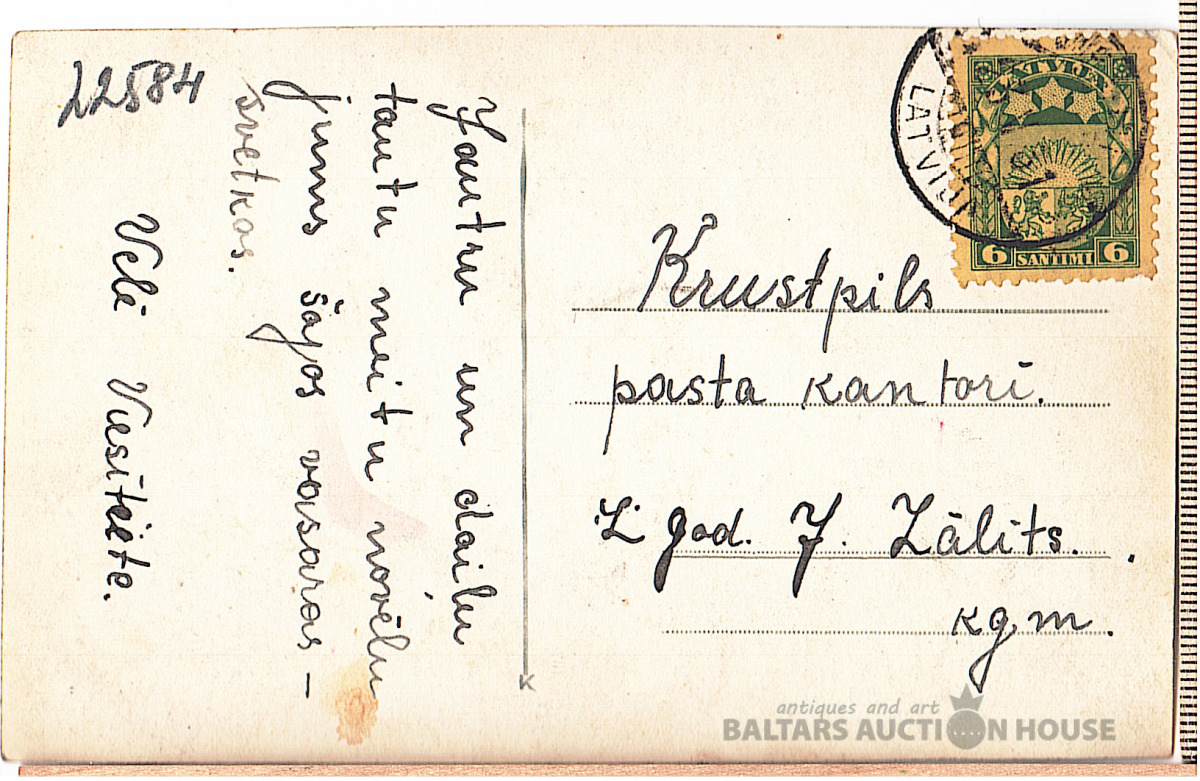 22584
Jautru un dailu
tautu meitu novēlu
jums šajos vasaras –
svetkos.
Velē Viesītiete.
LATVIJA
LATVIJA
6 SANTIMI 6
Krustpils
pasta kantorī.
L. god. J. Zālīts.
kgm.
K
antiques and art
BALTARS AUCTION HOUSE